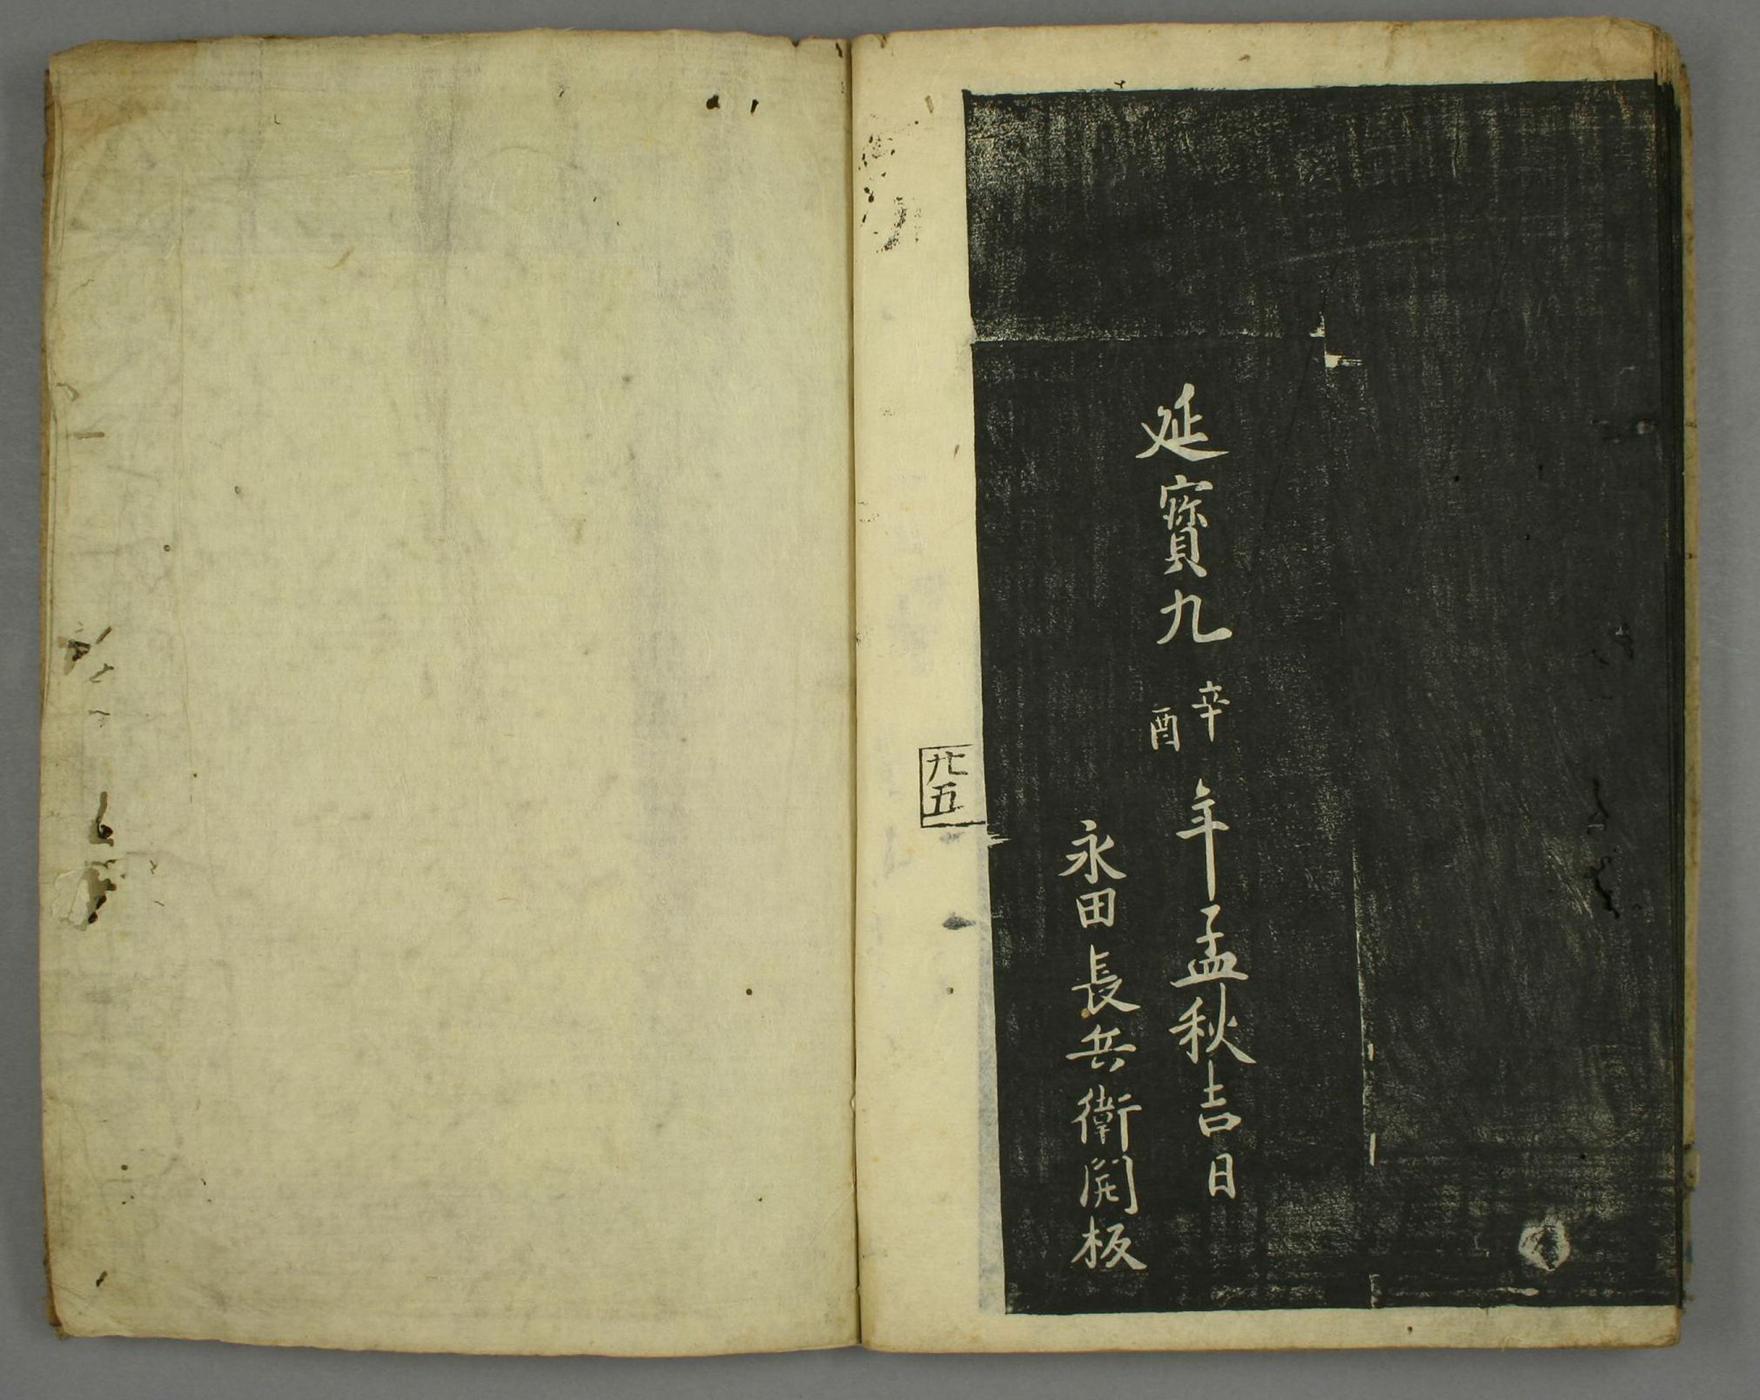 延寳九辛酉年孟秋吉日
永田長兵衛開板
廿五